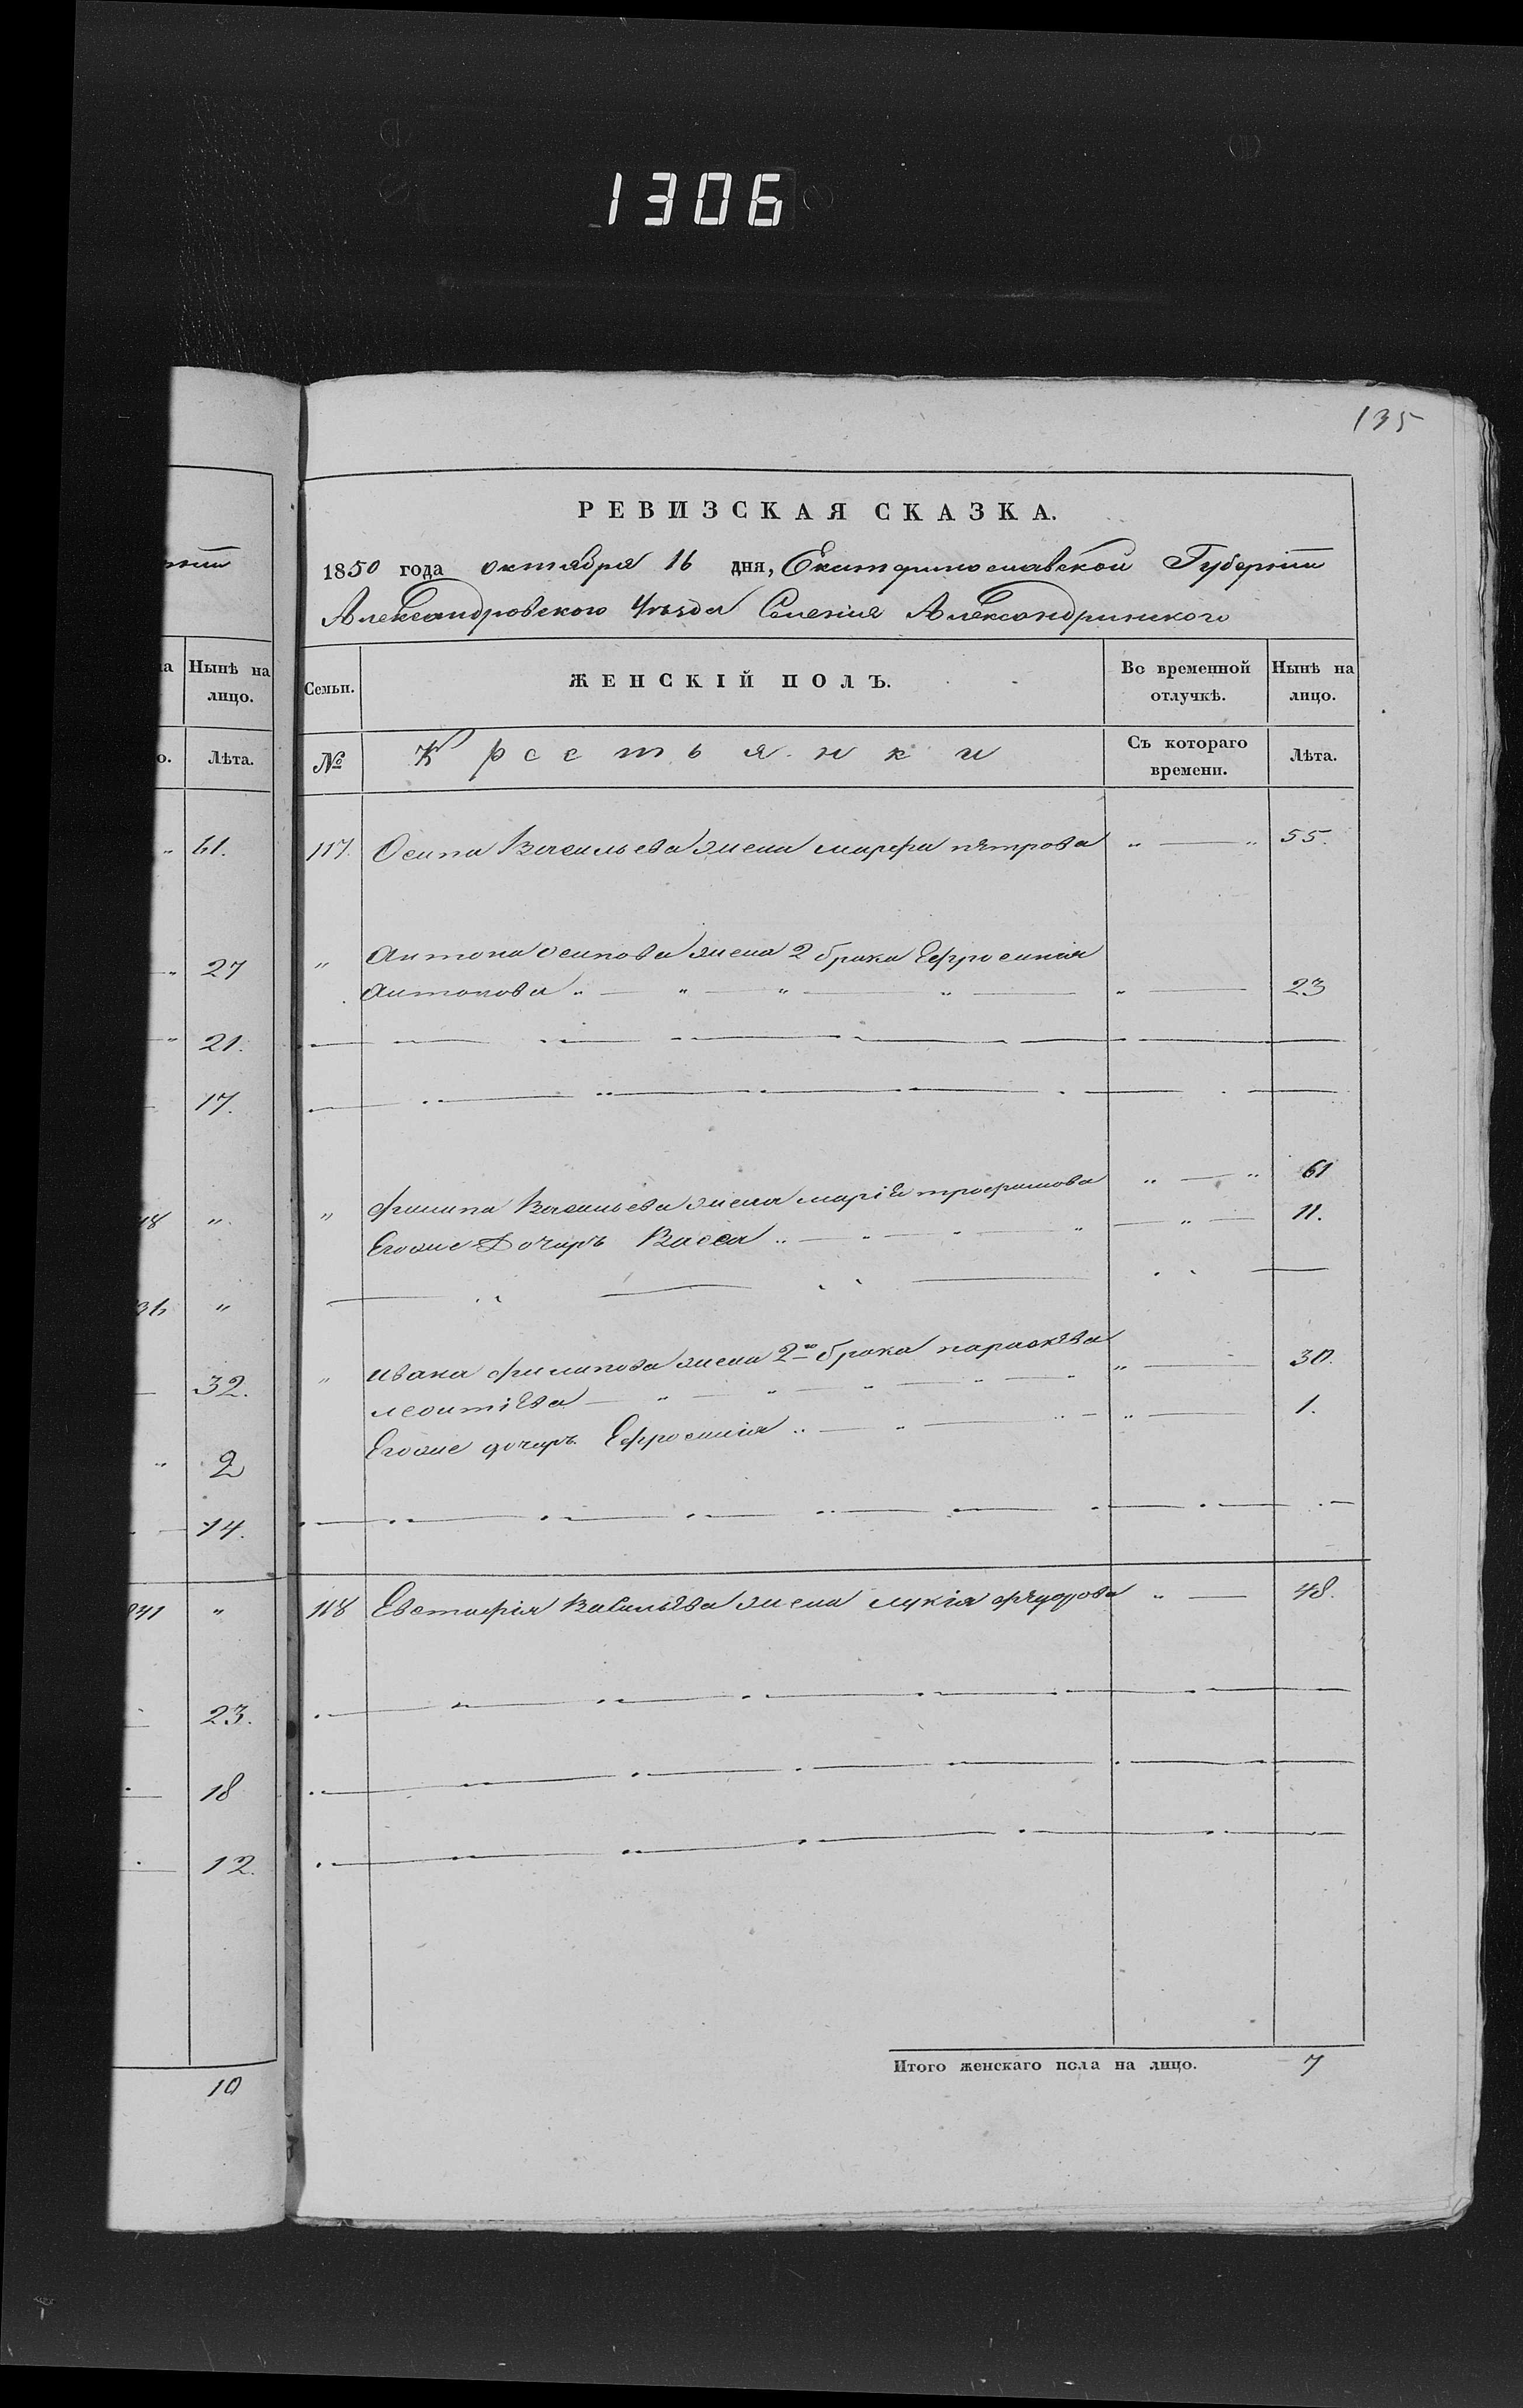 1306
135
РЕВИЗСКАЯ СКАЗКА.
1850 года октября 16 дня, Екатеринославской Губернiи
Александровского Уѣзда Селенiя Александринского
Семьи. ЖЕНСКIЙ ПОЛЪ. Во временной отлучкѣ. Нынѣ на лицо.
№ Крестьянки Съ котораго времени. Лѣта.
117. Осипа Васильева жена марфа пѣтрова " — " 55.
" Антона осипова жена 2 брака Ефросинiя
Антонова " — " — " — " — " — 23
" Филипа Васильева жена марiя трофимова " — " 61
Егоже Дочерь Васса " — " — " — " — " — 11.
" ивана филипова жена 2го брака параскѣва
леонтiева — " — " — " — " — " " — 30.
Егоже дочерь Ефросинiя " — " — " — " — 1.
118 Евстафiя Васильѣва жена лукiя фѣдорова " — 48.
Итого женскаго пола на лицо. 7
Нынѣ на лицо.
Лѣта.
61.
27
21.
17.
"
"
32.
2
14.
"
23.
18
12.
10